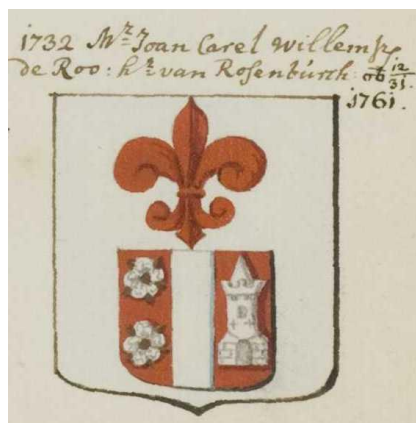 1732 Mr. Joan Carel Willemsz
de Roo: hr. van Rosenburch: ob 12/31.
1761.